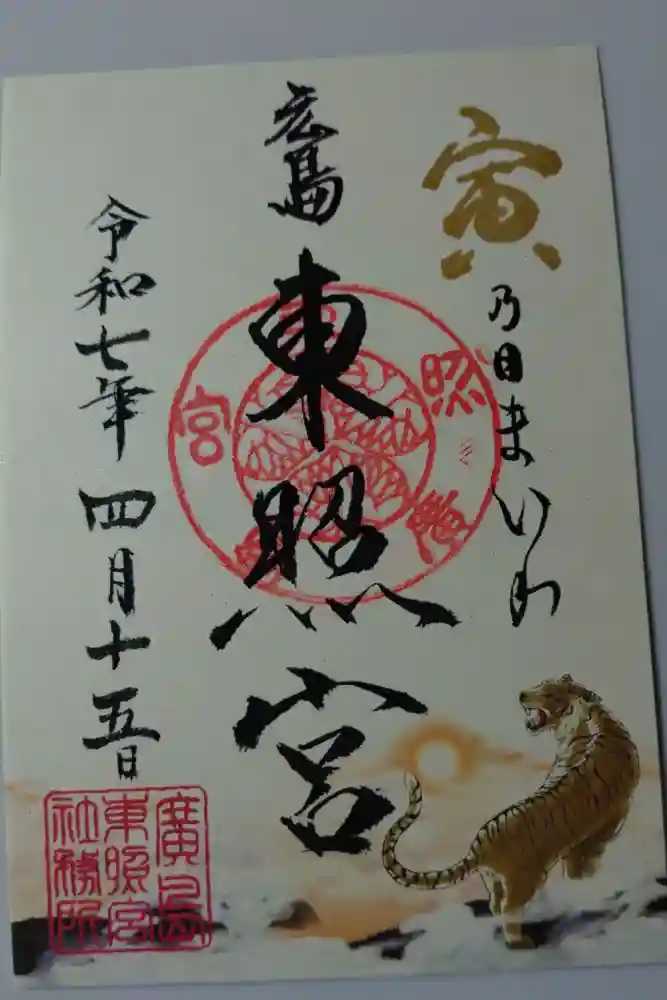 寅乃日まいり
広島
東照宮
令和七年四月十五日
廣島
東照宮
社務所